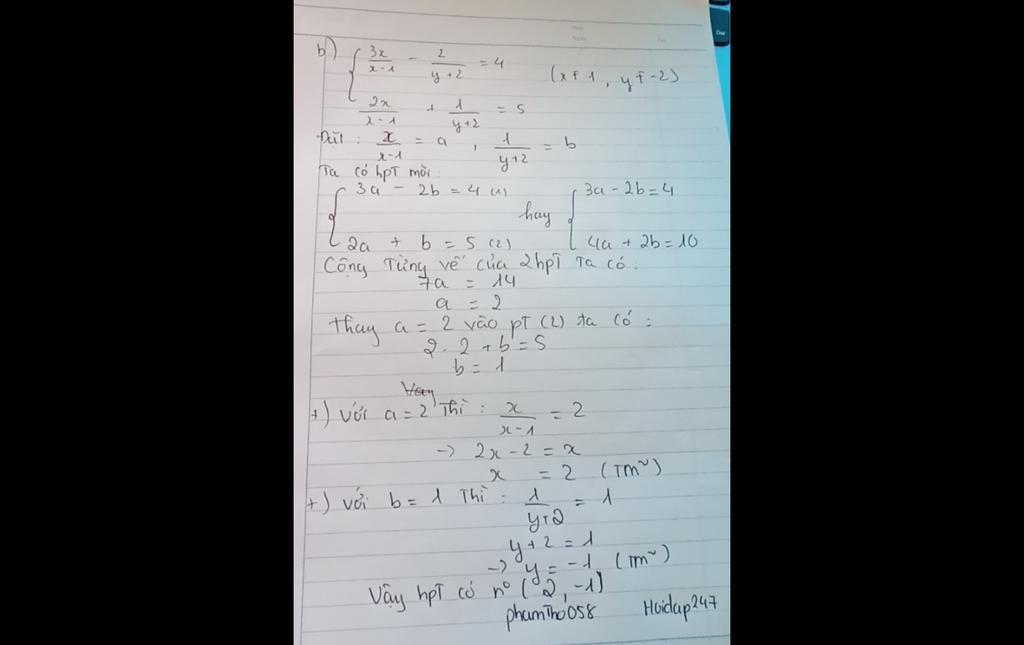 b) { 3x/(x-1) - 2/(y+2) = 4 (x ≠ 1, y ≠ -2)
2x/(x-1) + 1/(y+2) = 5
Đặt : x/(x-1) = a , 1/(y+2) = b
Ta có hpT mới:
{ 3a - 2b = 4 (1) hay { 3a - 2b = 4
2a + b = 5 (2) 4a + 2b = 10
Cộng Từng vế của 2hpT Ta có:
7a = 14
a = 2
Thay a = 2 vào pT (2) ta có :
2. 2 + b = 5
b = 1
+) Với a = 2 Thì : x/(x-1) = 2
-> 2x - 2 = x
x = 2 (Tm~)
+) với b = 1 Thì : 1/(y+2) = 1
y + 2 = 1
-> y = -1 (Tm~)
Vậy hpT có n° (2, -1)
phamTho058 Hoidap247